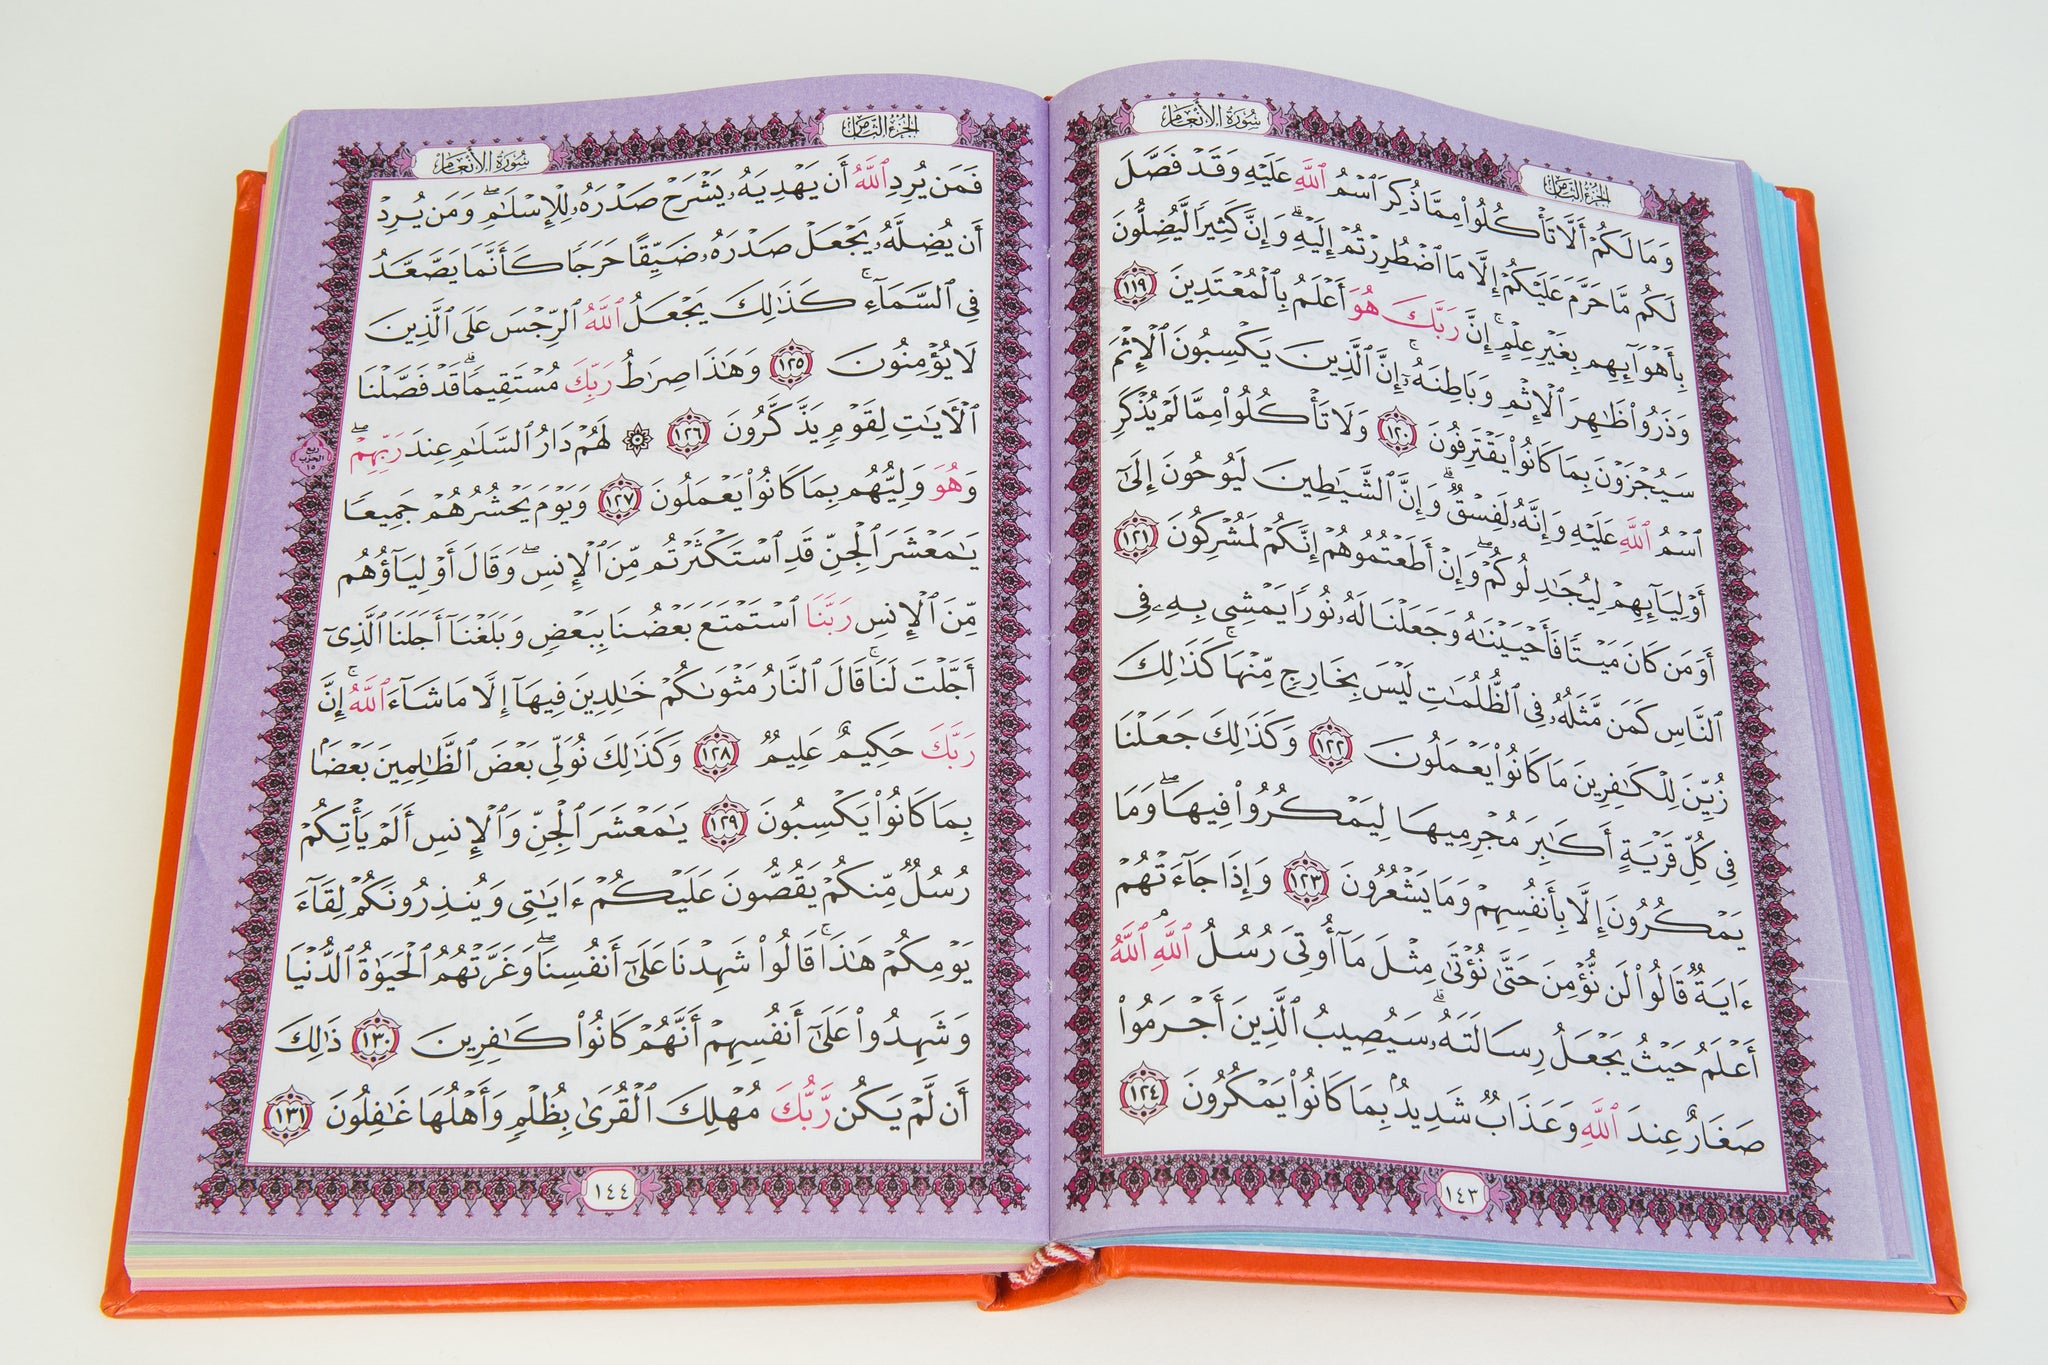 سُورَةُ الأَنْعَام
الجُزْءُ الثَّامِن
وَمَا لَكُمْ أَلَّا تَأْكُلُوا۟ مِمَّا ذُكِرَ ٱسْمُ ٱللَّهِ عَلَيْهِ وَقَدْ فَصَّلَ
لَكُم مَّا حَرَّمَ عَلَيْكُمْ إِلَّا مَا ٱضْطُرِرْتُمْ إِلَيْهِ ۗ وَإِنَّ كَثِيرًا لَّيُضِلُّونَ
بِأَهْوَآئِهِم بِغَيْرِ عِلْمٍ ۗ إِنَّ رَبَّكَ هُوَ أَعْلَمُ بِٱلْمُعْتَدِينَ ١١٩
وَذَرُوا۟ ظَـٰهِرَ ٱلْإِثْمِ وَبَاطِنَهُۥٓ ۚ إِنَّ ٱلَّذِينَ يَكْسِبُونَ ٱلْإِثْمَ
سَيُجْزَوْنَ بِمَا كَانُوا۟ يَقْتَرِفُونَ ١٢٠ وَلَا تَأْكُلُوا۟ مِمَّا لَمْ يُذْكَرِ
ٱسْمُ ٱللَّهِ عَلَيْهِ وَإِنَّهُۥ لَفِسْقٌ ۗ وَإِنَّ ٱلشَّيَـٰطِينَ لَيُوحُونَ إِلَىٰٓ
أَوْلِيَآئِهِمْ لِيُجَـٰدِلُوكُمْ ۖ وَإِنْ أَطَعْتُمُوهُمْ إِنَّكُمْ لَمُشْرِكُونَ ١٢١
أَوَمَن كَانَ مَيْتًا فَأَحْيَيْنَـٰهُ وَجَعَلْنَا لَهُۥ نُورًا يَمْشِى بِهِۦ فِى
ٱلنَّاسِ كَمَن مَّثَلُهُۥ فِى ٱلظُّلُمَـٰتِ لَيْسَ بِخَارِجٍ مِّنْهَا ۚ كَذَٰلِكَ
زُيِّنَ لِلْكَـٰفِرِينَ مَا كَانُوا۟ يَعْمَلُونَ ١٢٢ وَكَذَٰلِكَ جَعَلْنَا
فِى كُلِّ قَرْيَةٍ أَكَـٰبِرَ مُجْرِمِيهَا لِيَمْكُرُوا۟ فِيهَا ۖ وَمَا
يَمْكُرُونَ إِلَّا بِأَنفُسِهِمْ وَمَا يَشْعُرُونَ ١٢٣ وَإِذَا جَآءَتْهُمْ
ءَايَةٌ قَالُوا۟ لَن نُّؤْمِنَ حَتَّىٰ نُؤْتَىٰ مِثْلَ مَآ أُوتِىَ رُسُلُ ٱللَّهِ ۘ ٱللَّهُ
أَعْلَمُ حَيْثُ يَجْعَلُ رِسَالَتَهُۥ ۗ سَيُصِيبُ ٱلَّذِينَ أَجْرَمُوا۟
صَغَارٌ عِندَ ٱللَّهِ وَعَذَابٌ شَدِيدٌۢ بِمَا كَانُوا۟ يَمْكُرُونَ ١٢٤
١٤٣
الجُزْءُ الثَّامِن
سُورَةُ الأَنْعَام
فَمَن يُرِدِ ٱللَّهُ أَن يَهْدِيَهُۥ يَشْرَحْ صَدْرَهُۥ لِلْإِسْلَـٰمِ ۖ وَمَن يُرِدْ
أَن يُضِلَّهُۥ يَجْعَلْ صَدْرَهُۥ ضَيِّقًا حَرَجًا كَأَنَّمَا يَصَّعَّدُ
فِى ٱلسَّمَآءِ ۚ كَذَٰلِكَ يَجْعَلُ ٱللَّهُ ٱلرِّجْسَ عَلَى ٱلَّذِينَ
لَا يُؤْمِنُونَ ١٢٥ وَهَـٰذَا صِرَٰطُ رَبِّكَ مُسْتَقِيمًا ۗ قَدْ فَصَّلْنَا
ٱلْـَٔايَـٰتِ لِقَوْمٍ يَذَّكَّرُونَ ١٢٦ ۞ لَهُمْ دَارُ ٱلسَّلَـٰمِ عِندَ رَبِّهِمْ ۖ
ربع
الحزب
١٥
وَهُوَ وَلِيُّهُم بِمَا كَانُوا۟ يَعْمَلُونَ ١٢٧ وَيَوْمَ يَحْشُرُهُمْ جَمِيعًا
يَـٰمَعْشَرَ ٱلْجِنِّ قَدِ ٱسْتَكْثَرْتُم مِّنَ ٱلْإِنسِ ۖ وَقَالَ أَوْلِيَآؤُهُم
مِّنَ ٱلْإِنسِ رَبَّنَا ٱسْتَمْتَعَ بَعْضُنَا بِبَعْضٍ وَبَلَغْنَآ أَجَلَنَا ٱلَّذِىٓ
أَجَّلْتَ لَنَا ۚ قَالَ ٱلنَّارُ مَثْوَىٰكُمْ خَـٰلِدِينَ فِيهَآ إِلَّا مَا شَآءَ ٱللَّهُ ۗ إِنَّ
رَبَّكَ حَكِيمٌ عَلِيمٌ ١٢٨ وَكَذَٰلِكَ نُوَلِّى بَعْضَ ٱلظَّـٰلِمِينَ بَعْضًۢا
بِمَا كَانُوا۟ يَكْسِبُونَ ١٢٩ يَـٰمَعْشَرَ ٱلْجِنِّ وَٱلْإِنسِ أَلَمْ يَأْتِكُمْ
رُسُلٌ مِّنكُمْ يَقُصُّونَ عَلَيْكُمْ ءَايَـٰتِى وَيُنذِرُونَكُمْ لِقَآءَ
يَوْمِكُمْ هَـٰذَا ۚ قَالُوا۟ شَهِدْنَا عَلَىٰٓ أَنفُسِنَا ۖ وَغَرَّتْهُمُ ٱلْحَيَوٰةُ ٱلدُّنْيَا
وَشَهِدُوا۟ عَلَىٰٓ أَنفُسِهِمْ أَنَّهُمْ كَانُوا۟ كَـٰفِرِينَ ١٣٠ ذَٰلِكَ
أَن لَّمْ يَكُن رَّبُّكَ مُهْلِكَ ٱلْقُرَىٰ بِظُلْمٍ وَأَهْلُهَا غَـٰفِلُونَ ١٣١
١٤٤